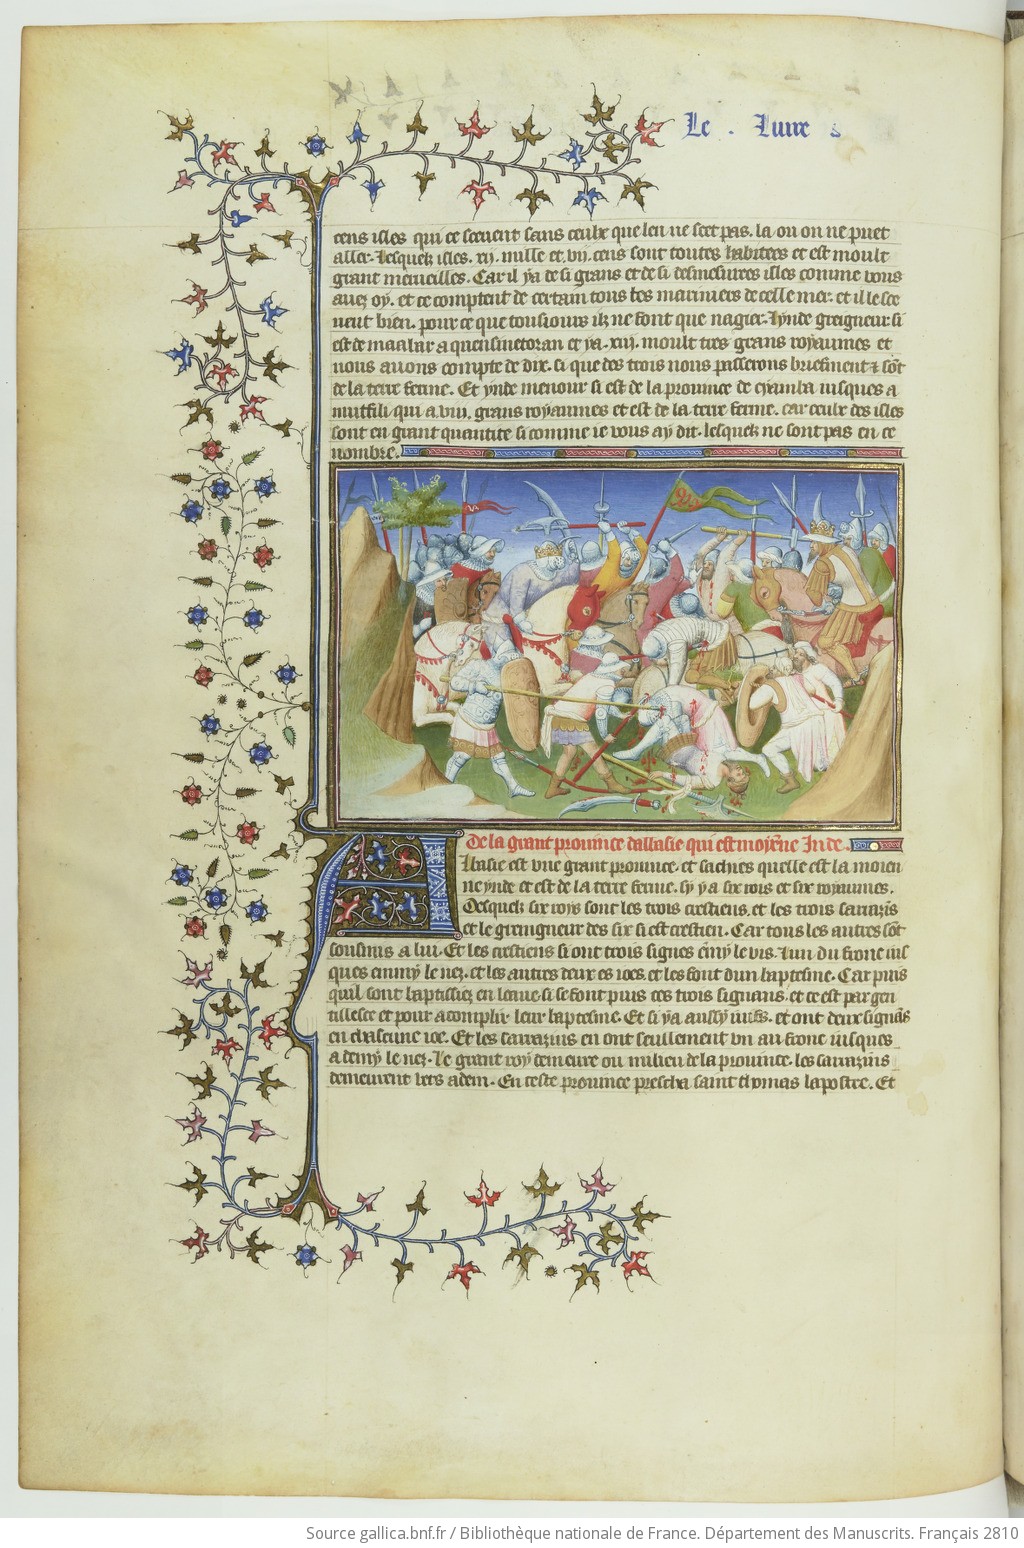 Le . liure
cens isles qui ce scevent sans ceulx que len ne scet pas. la ou on ne puet
aller. Lesquels isles. xij. mille et. vij. cens sont toutes habitees et est moult
grant merueilles. Car il ya de si grans et de si desmesures isles comme vous
auez oy. et ce comptent de certain tous les mariniers de celle mer. et il le sce
uent bien. pour ce que tousiours ilz ne font que nagier. Ynde greigneur si
est de maabar a quensinetoran et ya. xiij. moult tres grans royaumes et
nous auons compte de dix. si que des trois nous passerons briefment et sont
de la terre ferme. Et ynde menour si est de la prouince de cyamba iusques a
mutfili qui a. viij. grans royaumes et est de la terre ferme. car ceulx des isles
sont en grant quantite si comme ie vous ay dit. lesquels ne sont pas en ce
nombre.
De la grant prouince dabasie qui est moienne Inde.
Abasie est vne grant prouince. et sachies quelle est la moien
ne ynde et est de la terre ferme. sy y a six rois et six royaumes.
Desquels six roys sont les trois crestiens. et les trois sarrazins
et le greingneur des six si est crestien. Car tous les autres sont
sousmis a lui. Et les crestiens si ont trois signes emmy le vis. lun du fronc ius
ques emmy le nez. et les autres deux es ioes. et les font dun baptesme. Car puis
quil sont baptissiez en leaue si se font puis ces trois signaus. et ce est par gen
tillesce et pour acomplir leur baptesme. Et si ya aussy iuifs. et ont deux signaus
en chascune ioe. Et les sarrazins en ont seullement vn au fronc iusques
a demy le nez. Le grant roy demeure ou milieu de la prouince. les sarrazins
demeurent vers adem. En ceste prouince prescha saint thymas lapostre. Et
Source gallica.bnf.fr / Bibliothèque nationale de France. Département des Manuscrits. Français 2810